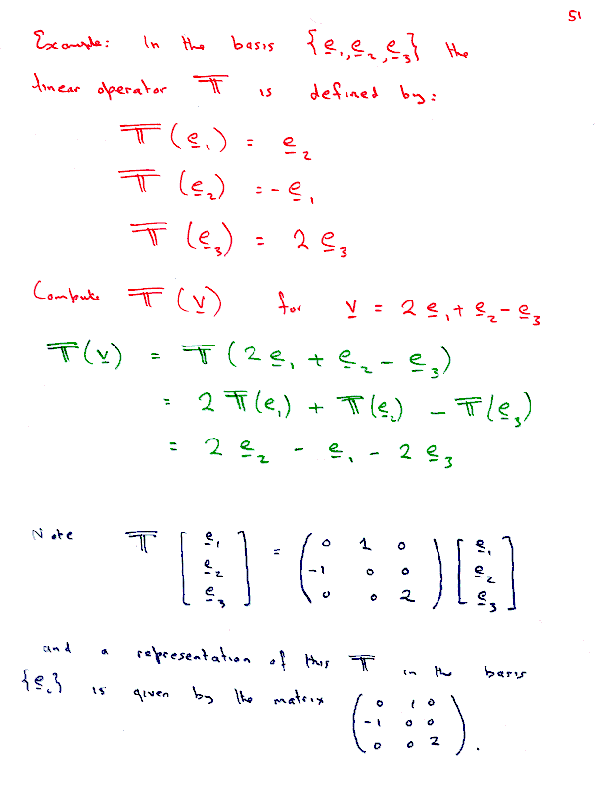 51
Example: In the basis {e₁, e₂, e₃} the
linear operator T is defined by:
T(e₁) = e₂
T(e₂) = -e₁
T(e₃) = 2e₃
Compute T(v) for v = 2e₁ + e₂ - e₃
T(v) = T(2e₁ + e₂ - e₃)
= 2T(e₁) + T(e₂) - T(e₃)
= 2e₂ - e₁ - 2e₃
Note T [e₁ e₂ e₃] = (0 1 0 / -1 0 0 / 0 0 2) [e₁ e₂ e₃]
and a representation of this T in the basis
{eᵢ} is given by the matrix (0 1 0 / -1 0 0 / 0 0 2).